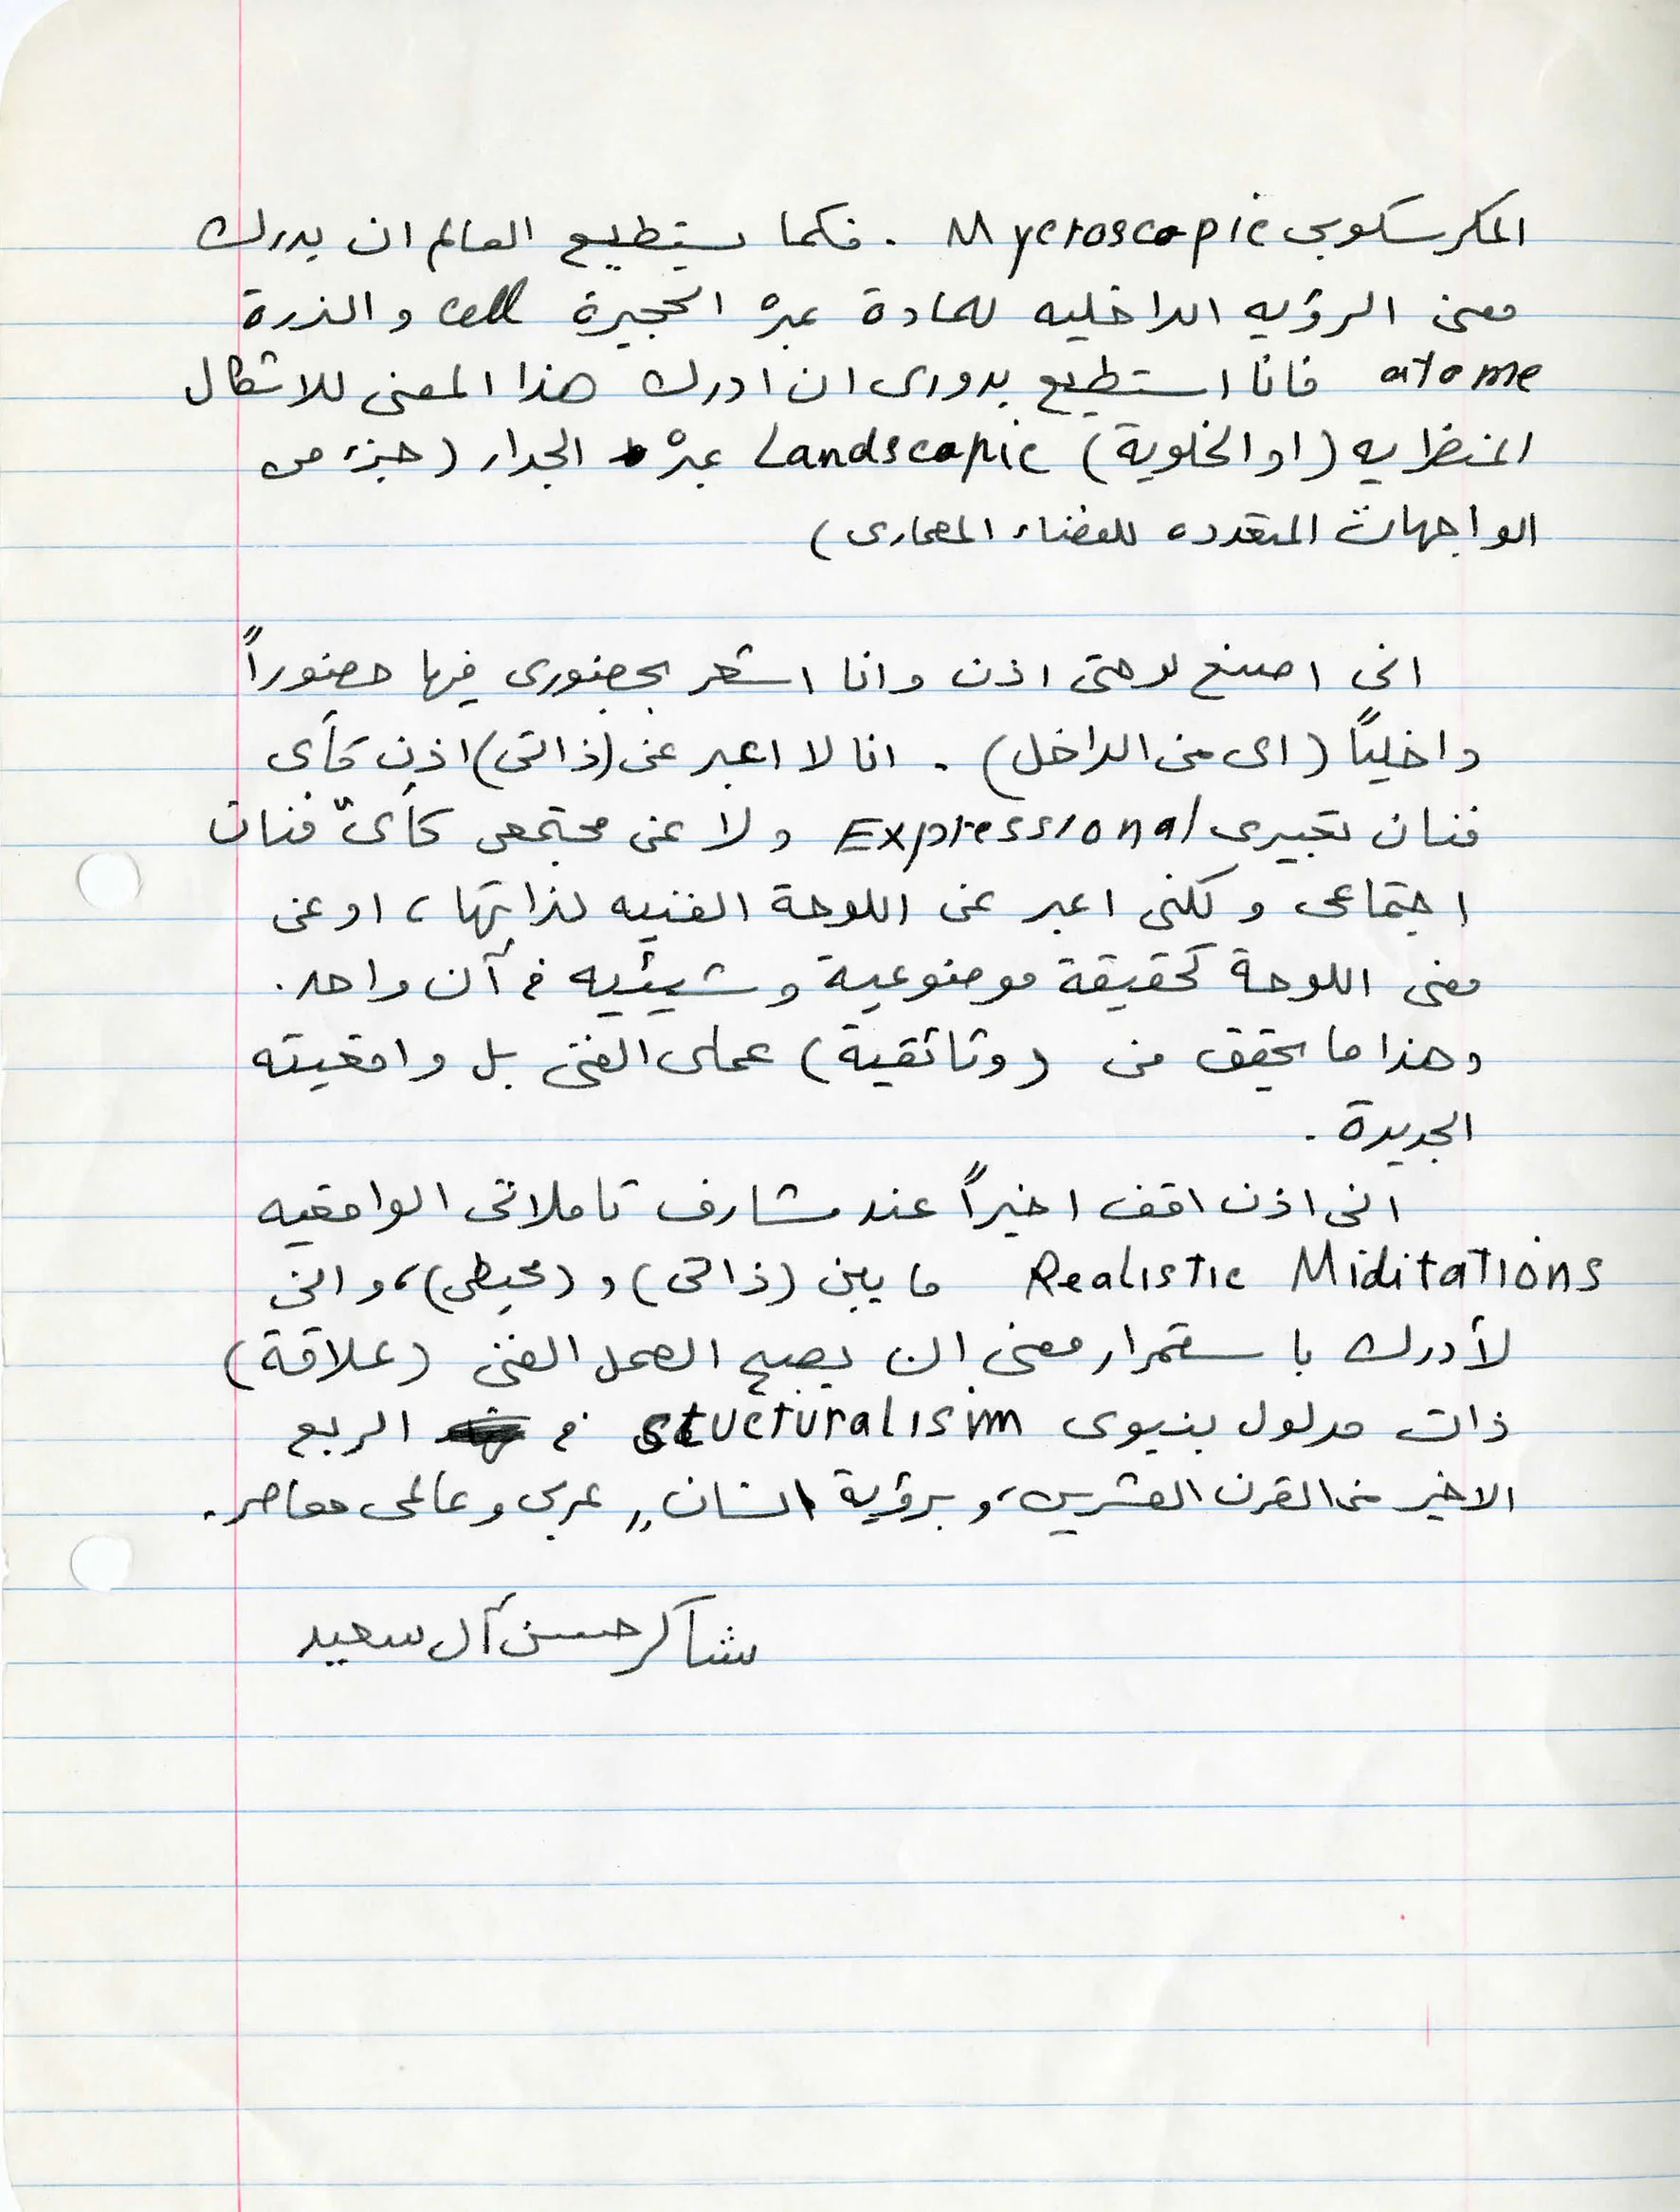 المكرسكوبي Mycroscopic . فكما يستطيع العالم ان يدرك
معنى الرؤيه الداخليه للمادة عبرْ الحجيرة cell و الذرة
atome فانا استطيع بدورى ان ادرك هذا المعنى للاشكال
المنظرايه (او الخلوية) Landscapic عبرْ الجدار (جزء من
الواجهات المتعدده للفضاء المعمارى)
انى اصنع لوحتى اذن وانا اشعر بحضورى فيها حضوراً
داخلياً (اى من الداخل) . انا لا اعبر عن (ذاتى) اذن كأى
فنان تعبيرى Expressional ولا عن مجتمعى كأىّ فنان
اجتماعى ولكنى اعبر عن اللوحة الفنيه لذاتها، او عن
معنى اللوحة كحقيقة موضوعية و شيئيه فى آن واحد.
وهذا ما يحقق من (وثائقية) عملى الفنى بل واقعيته
الجديدة .
انى اذن اقف اخيراً عند مشارف تاملاتى الواقعيه
Realistic Miditations ما بين (ذاتى) و (محيطى)، و انى
لأدرك باستمرار معنى ان يصبح العمل الفنى (علاقة)
ذات مدلول بنيوى stucturalism فى الربع
الاخير من القرن العشرين، و برؤية انسان,, عربى و عالمى معاصر.
شاكر حسن آل سعيد